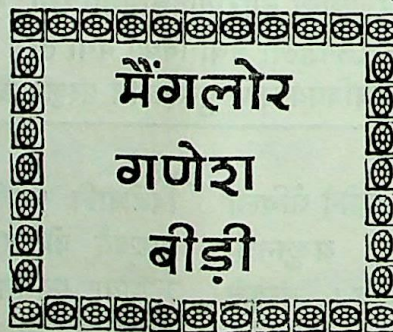 मैंगलोर
गणेश
बीड़ी